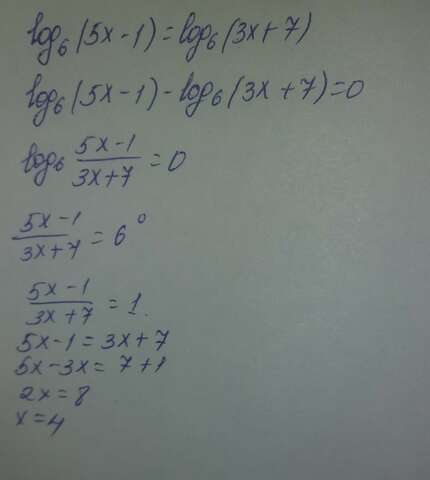 log₆(5x-1)=log₆(3x+7)
log₆(5x-1)-log₆(3x+7)=0
log₆ (5x-1)/(3x+7) = 0
(5x-1)/(3x+7) = 6⁰
(5x-1)/(3x+7) = 1.
5x-1=3x+7
5x-3x=7+1
2x=8
x=4